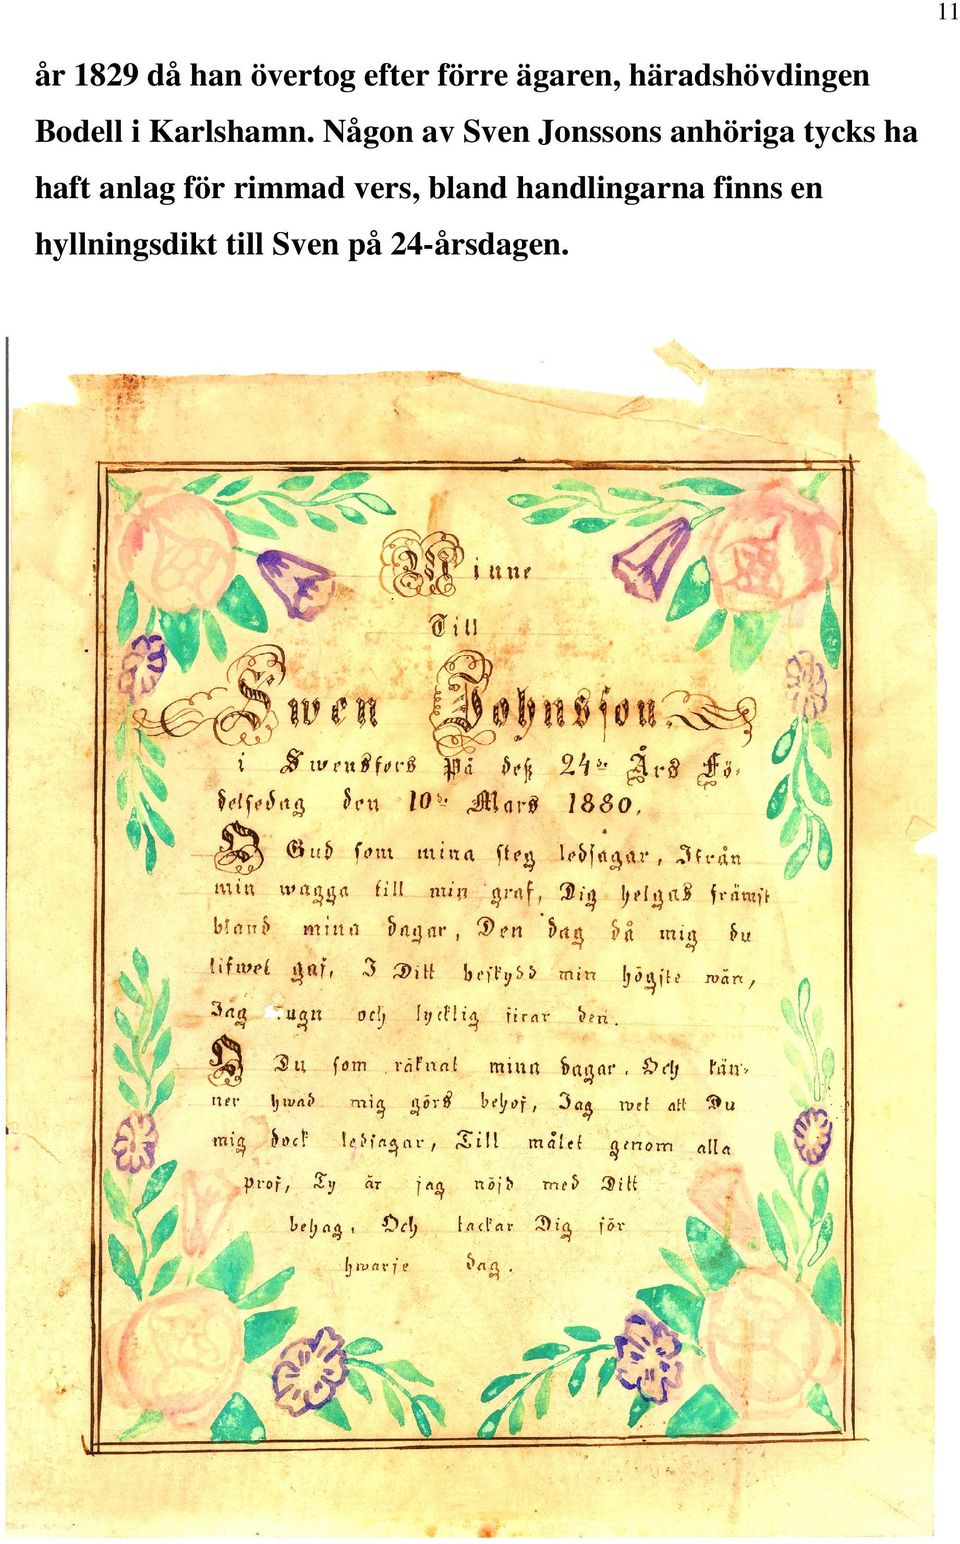 11
år 1829 då han övertog efter förre ägaren, häradshövdingen
Bodell i Karlshamn. Någon av Sven Jonssons anhöriga tycks ha
haft anlag för rimmad vers, bland handlingarna finns en
hyllningsdikt till Sven på 24-årsdagen.
Minne
Till
Swen Johnsson
i Swensfors på deß 24de Års Fö-
delsedag den 10de Mars 1880.
O Gud som mina steg ledsagar, Ifrån
min wagga till min graf, Dig helgas främst
bland mina dagar, Den dag då mig du
lifwet gaf, I Ditt beskydd min högste wän,
Jag lugn och lycklig firar den.
O Du som räknat mina dagar, Och kän-
ner hwad mig görs behof, Jag wet att Du
mig dock ledsagar, Till målet genom alla
prof, Ty är jag nöjd med Ditt
behag, Och tackar Dig för
hwarje dag.